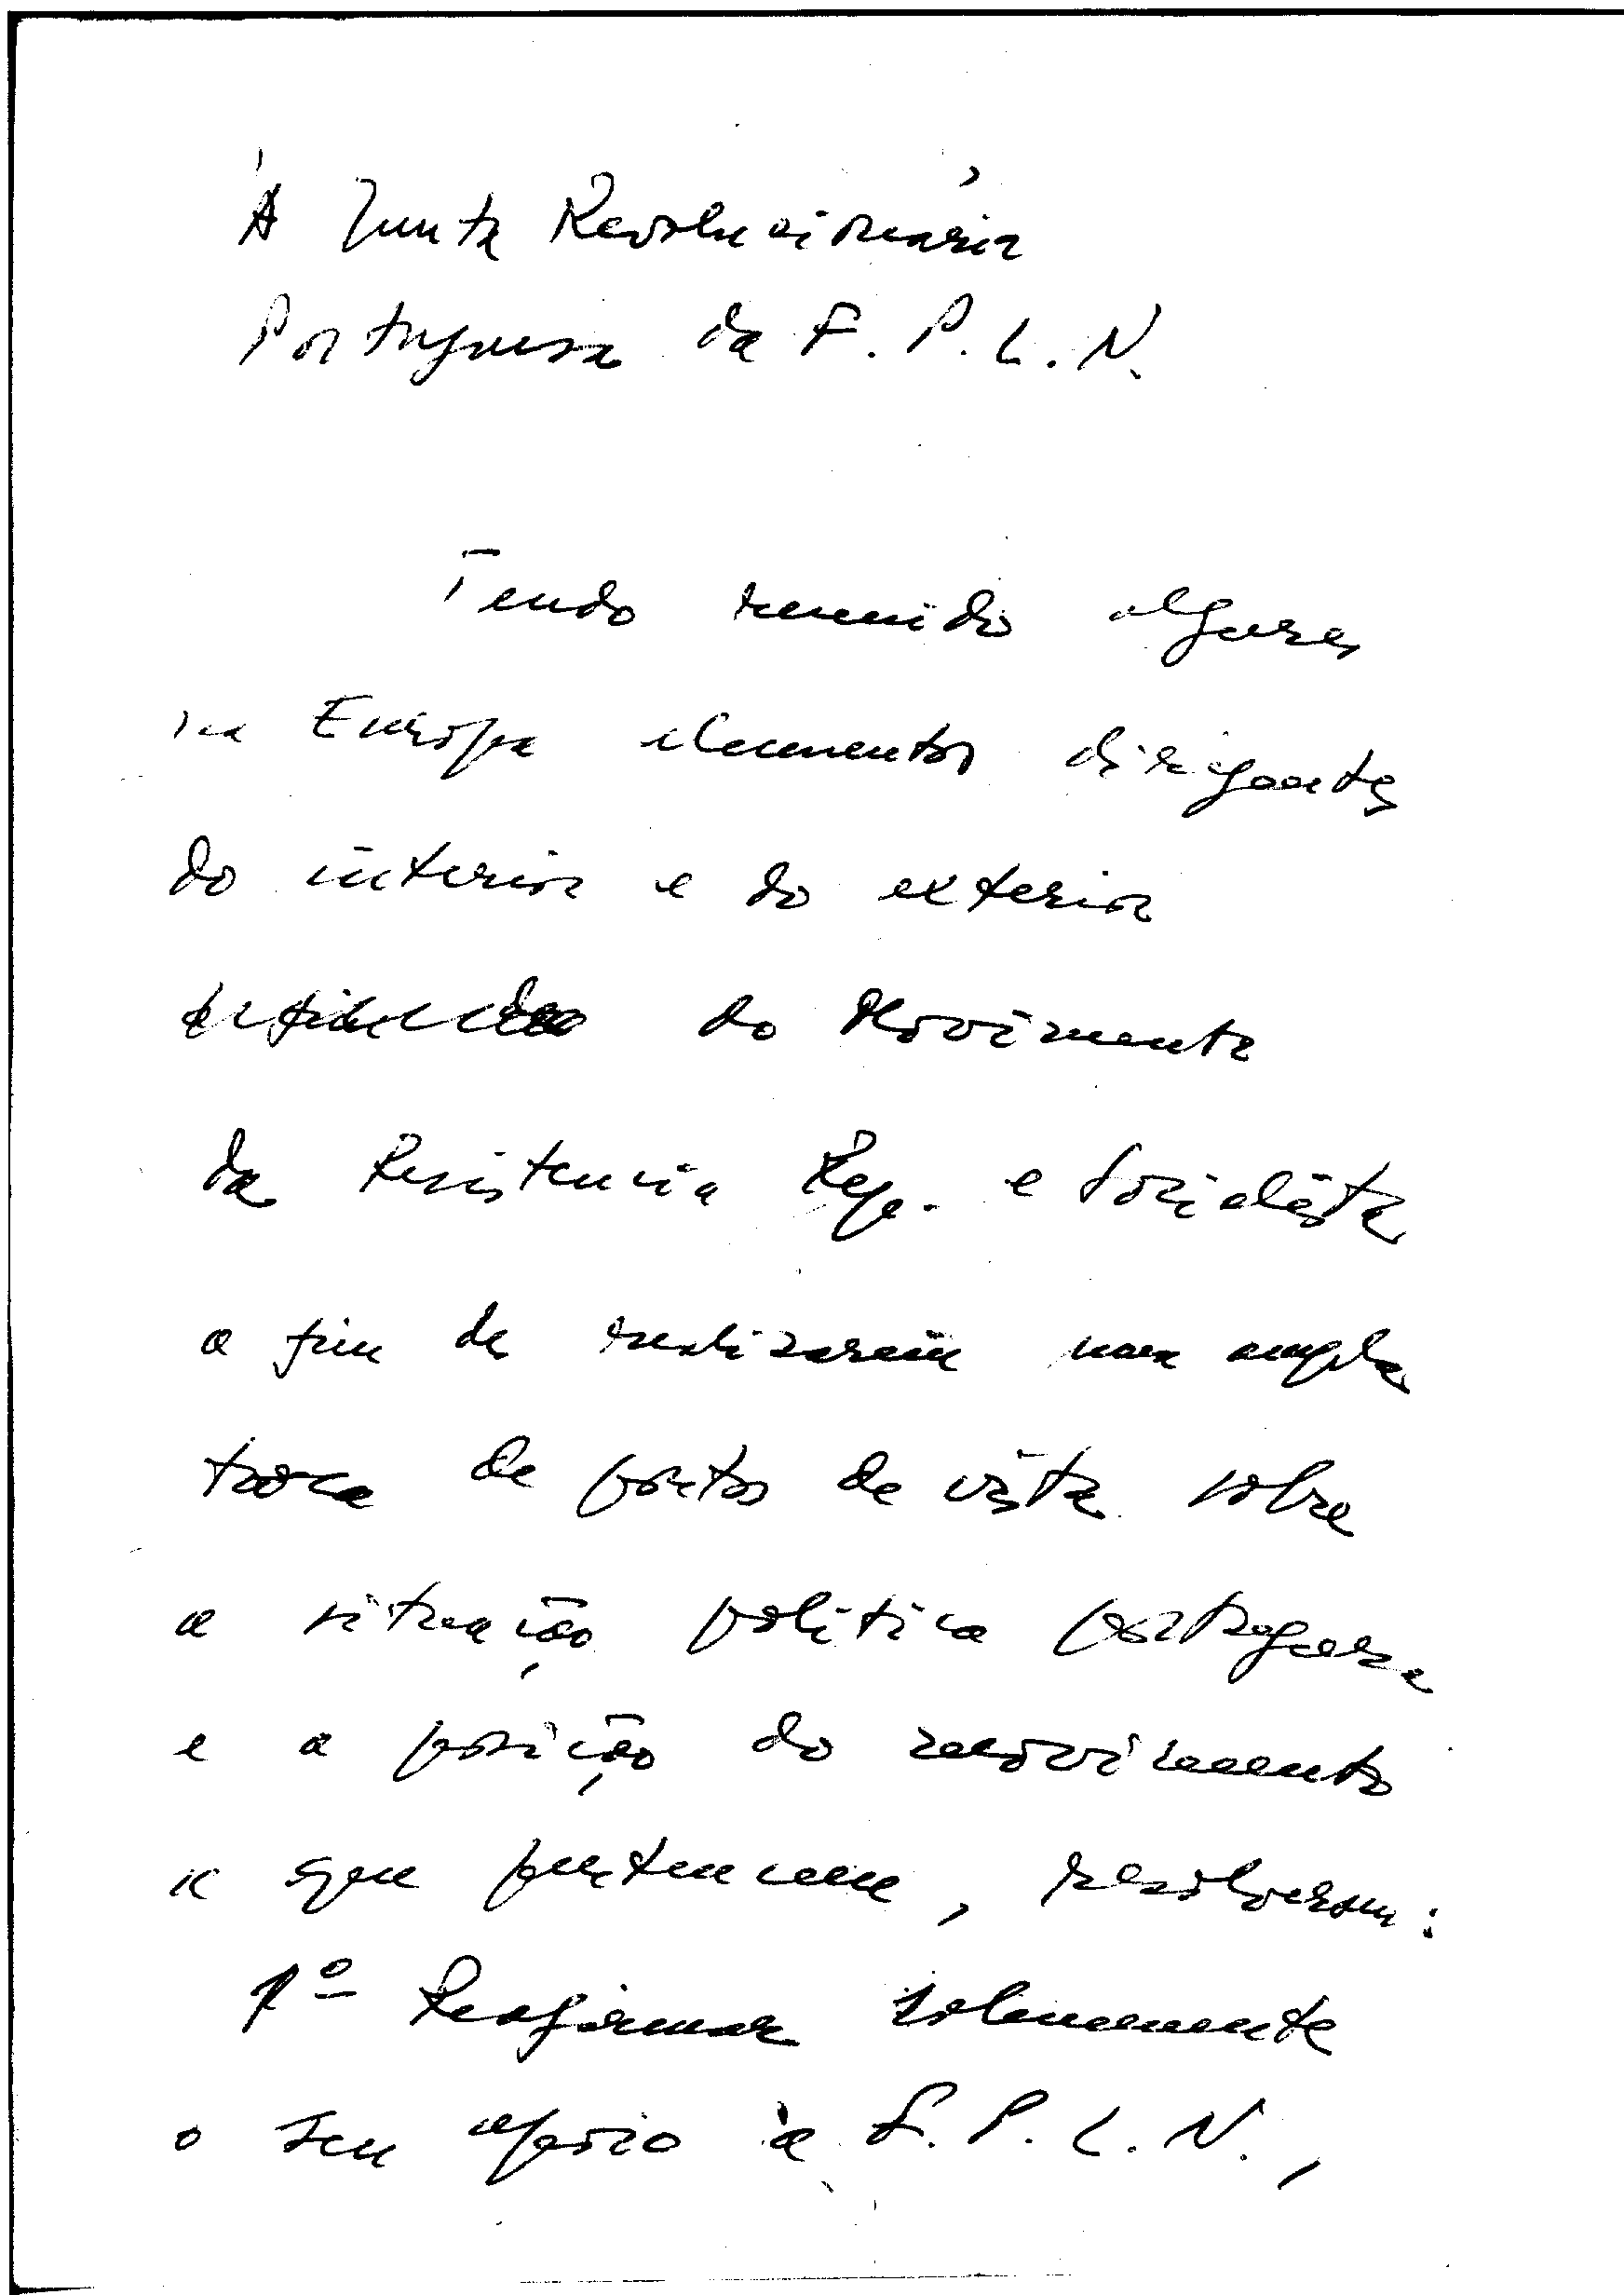 À Junta Revolucionária
Portuguesa da F. P. L. N.
Tendo reunido algures
na Europa elementos dirigentes
do interior e do exterior
do Movimento
da Resistencia Rep. e Socialista
a fim de realizarem uma ampla
troca de pontos de vista sobre
a situação politica portuguesa
e a posição do movimento
a que pertencem, resolveram:
1º Reafirmar solenemente
o seu apoio à F. P. L. N.,